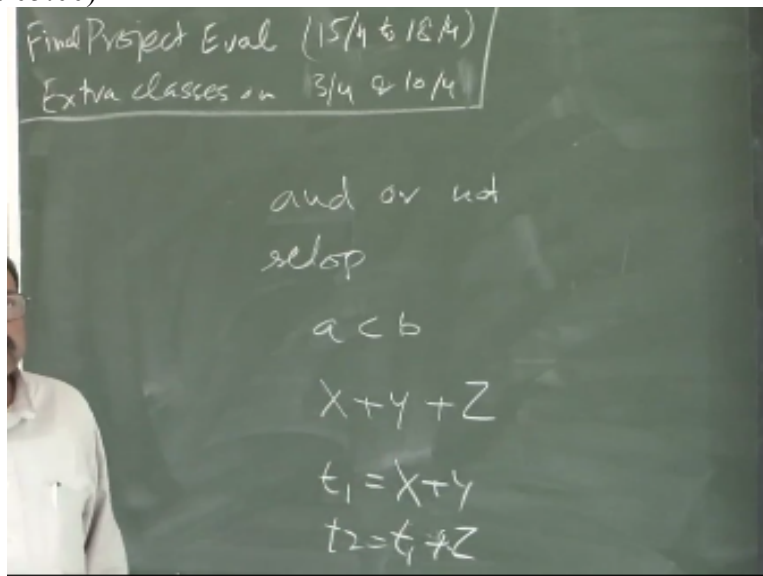 Final Project Eval (15/4 to 18/4)
Extra classes on 3/4 & 10/4
and or not
relop
a < b
X + Y + Z
t1 = X + Y
t2 = t1 + Z